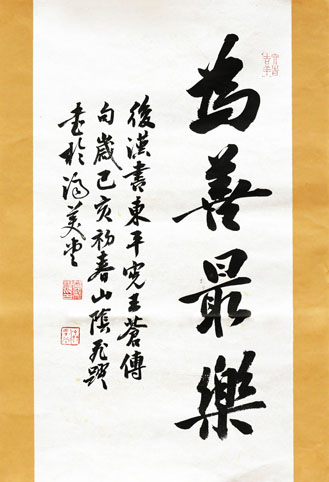 為善最樂
後漢書東平憲王蒼傳
句歲己亥初春山陰
書於